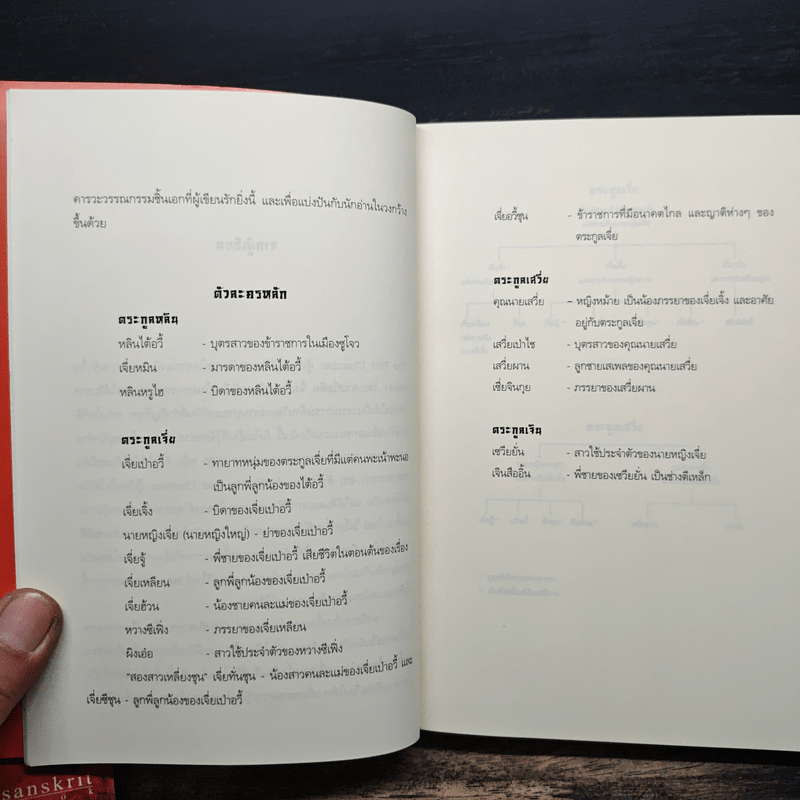 คารวะวรรณกรรมชิ้นเอกที่ผู้เขียนรักยิ่งนี้ และเพื่อแบ่งปันกับนักอ่านในวงกว้าง
ขึ้นด้วย
ตัวละครหลัก
ตระกูลหลิน
หลินไต้อวี้ - บุตรสาวของข้าราชการในเมืองซูโจว
เจี่ยหมิน - มารดาของหลินไต้อวี้
หลินหรูไฮ - บิดาของหลินไต้อวี้
ตระกูลเจี่ย
เจี่ยเป่าอวี้ - ทายาทหนุ่มของตระกูลเจี่ยที่มีแต่คนพะเน้าพะนอ
เป็นลูกพี่ลูกน้องของไต้อวี้
เจี่ยเจิ้ง - บิดาของเจี่ยเป่าอวี้
นายหญิงเจี่ย (นายหญิงใหญ่) - ย่าของเจี่ยเป่าอวี้
เจี่ยจู้ - พี่ชายของเจี่ยเป่าอวี้ เสียชีวิตในตอนต้นของเรื่อง
เจี่ยเหลียน - ลูกพี่ลูกน้องของเจี่ยเป่าอวี้
เจี่ยฮ้วน - น้องชายคนละแม่ของเจี่ยเป่าอวี้
หวางซีเฟิ่ง - ภรรยาของเจี่ยเหลียน
ผิงเอ๋อ - สาวใช้ประจำตัวของหวางซีเฟิ่ง
"สองสาวเหลี่ยงชุน" เจี่ยทั่นชุน - น้องสาวคนละแม่ของเจี่ยเป่าอวี้ และ
เจี่ยซีชุน - ลูกพี่ลูกน้องของเจี่ยเป่าอวี้
เจี่ยอวี้ชุน - ข้าราชการที่มีอนาคตไกล และญาติห่างๆ ของ
ตระกูลเจี่ย
ตระกูลเสวี่ย
คุณนายเสวี่ย - หญิงหม้าย เป็นน้องภรรยาของเจี่ยเจิ้ง และอาศัย
อยู่กับตระกูลเจี่ย
เสวี่ยเป่าไช - บุตรสาวของคุณนายเสวี่ย
เสวี่ยผาน - ลูกชายเสเพลของคุณนายเสวี่ย
เซี่ยจินกุย - ภรรยาของเสวี่ยผาน
ตระกูลเจิน
เซวียยั่น - สาวใช้ประจำตัวของนายหญิงเจี่ย
เจินสืออิ้น - พี่ชายของเซวียยั่น เป็นช่างตีเหล็ก
sanskrit